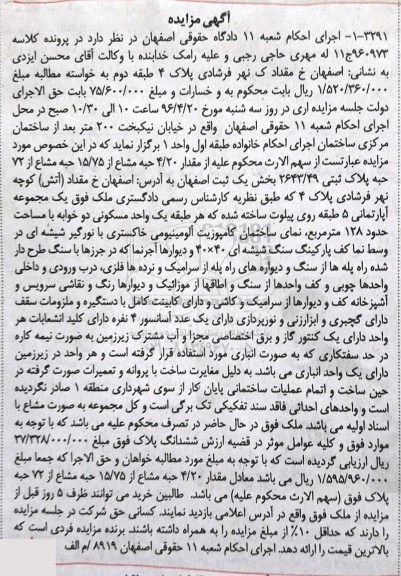 آگهی مزایده
۳۲۹۱-۱- اجرای احکام شعبه ۱۱ دادگاه حقوقی اصفهان در نظر دارد در پرونده کلاسه
۹۶۰۹۷۳ج۱۱ له مهری حاجی رجبی و علیه رامک خدابنده با وکالت آقای محسن ایزدی
به نشانی: اصفهان خ مقداد ک نهر فرشادی پلاک ۴ طبقه دوم به خواسته مطالبه مبلغ
۱/۵۲۰/۳۶۰/۰۰۰ ریال بابت محکوم به و خسارات و مبلغ ۷۵/۶۰۰/۰۰۰ بابت حق الاجرای
دولت جلسه مزایده ای در روز سه شنبه مورخ ۹۶/۴/۲۰ ساعت ۱۰ الی ۱۰/۳۰ صبح در محل
اجرای احکام شعبه ۱۱ حقوقی اصفهان واقع در خیابان نیکبخت ۲۰۰ متر بعد از ساختمان
مرکزی ساختمان اجرای احکام خانواده طبقه اول واحد ۱ برگزار نماید که در این خصوص مورد
مزایده عبارتست از سهم الارث محکوم علیه از مقدار ۴/۲۰ حبه مشاع از ۱۵/۷۵ حبه مشاع از ۷۲
حبه پلاک ثبتی ۲۶۴۳/۴۹ بخش یک ثبت اصفهان به آدرس: اصفهان خ مقداد (آتش) کوچه
نهر فرشادی پلاک ۴ که طبق نظریه کارشناس رسمی دادگستری ملک فوق یک مجموعه
آپارتمانی ۵ طبقه روی پیلوت ساخته شده که هر طبقه یک واحد مسکونی دو خوابه با مساحت
حدود ۱۲۸ مترمربع، نمای ساختمان کامپوزیت آلومینیومی خاکستری با نورگیر شیشه ای در
وسط نما کف پارکینگ سنگ شیشه ای ۴۰×۴۰ و دیوارها آجرنما که در جرزها با سنگ طرح دار
شده راه پله ها از سنگ و دیواره های راه پله از سرامیک و نرده ها فلزی، درب ورودی و داخلی
واحدها چوبی و کف واحدها از سنگ و اطاقها از موزائیک و دیوارها رنگ و نقاشی سرویس و
آشپزخانه کف و دیوارها از سرامیک و کاشی و دارای کابینت کامل با دستگیره و ملزومات سقف
دارای گچبری و ابزارزنی و نورپردازی دارای یک عدد آسانسور ۴ نفره دارای کلید انشعابات هر
واحد دارای یک کنتور گاز و برق اختصاصی مجزا و آب مشترک زیرزمین به صورت نیمه کاره
در حد سفتکاری که به صورت انباری مورد استفاده قرار گرفته است و هر واحد در زیرزمین
دارای یک واحد انباری می باشد. به دلیل مغایرت ساخت با پروانه و تعمیرات صورت گرفته در
حین ساخت و اتمام عملیات ساختمانی پایان کار از سوی شهرداری منطقه ۱ صادر نگردیده
است و واحدهای احداثی فاقد سند تفکیکی تک برگی است و کل مجموعه به صورت مشاع با
اسناد اولیه می باشد. ملک فوق در حال حاضر در تصرف محکوم علیه می باشد که با توجه به
موارد فوق و کلیه عوامل موثر در قضیه ارزش ششدانگ پلاک فوق مبلغ ۳۷/۳۲۸/۰۰۰/۰۰۰
ریال ارزیابی گردیده است که با توجه به مبلغ مورد مطالبه خواهان و حق الاجرا که جمعا مبلغ
۱/۵۹۵/۹۶۰/۰۰۰ ریال می باشد معادل مقدار ۴/۲۰ حبه مشاع از ۱۵/۷۵ حبه مشاع از ۷۲ حبه
پلاک فوق (سهم الارث محکوم علیه) می باشد. طالبین خرید می توانند ظرف ۵ روز قبل از
مزایده از ملک فوق واقع در آدرس اعلامی بازدید نمایند. کسانی حق شرکت در جلسه مزایده
را دارند که حداقل ۱۰٪ از مبلغ مزایده را به همراه داشته باشند. برنده مزایده فردی است که
بالاترین قیمت را ارائه دهد. اجرای احکام شعبه ۱۱ حقوقی اصفهان ۸۹۱۹ /م الف